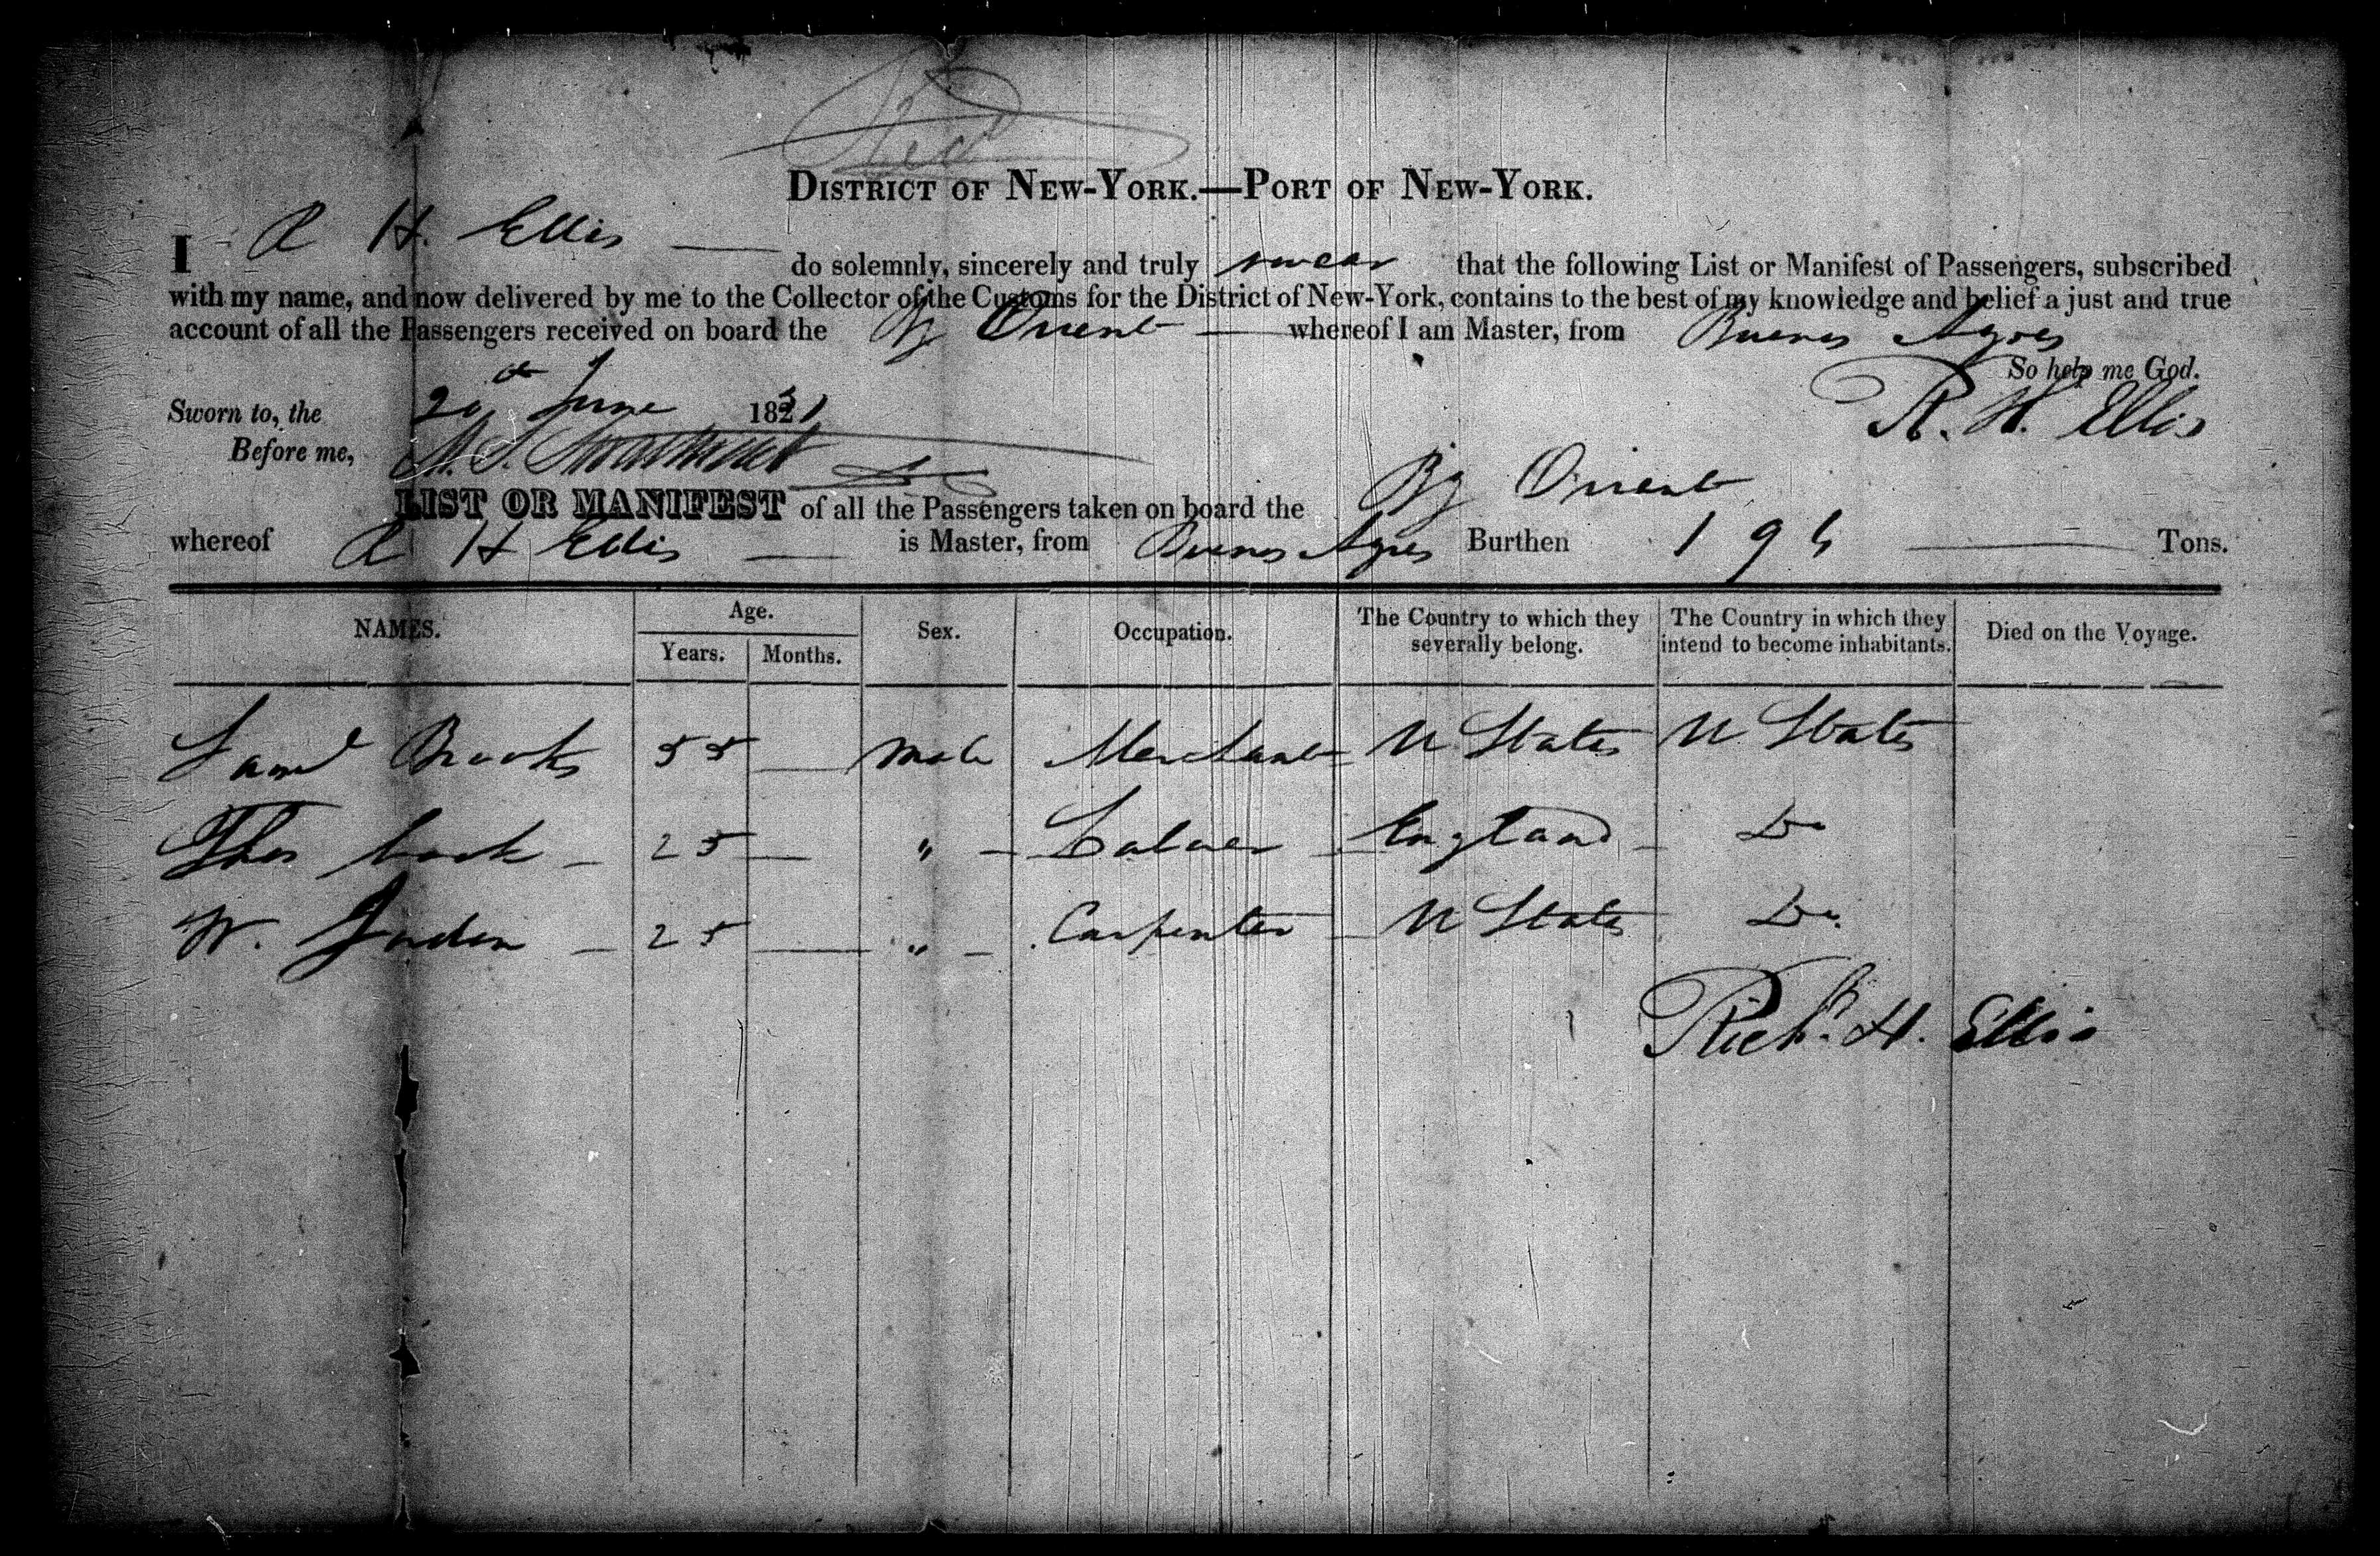 Recd
DISTRICT OF NEW-YORK.—PORT OF NEW-YORK.
I R H. Ellis — do solemnly, sincerely and truly swear that the following List or Manifest of Passengers, subscribed
with my name, and now delivered by me to the Collector of the Customs for the District of New-York, contains to the best of my knowledge and belief a just and true
account of all the Passengers received on board the Bg Orient — whereof I am Master, from Buenos Ayres
So help me God.
Sworn to, the 20th June 1831 R. H. Ellis
Before me,
LIST OR MANIFEST of all the Passengers taken on board the Bg Orient
whereof R H Ellis — is Master, from Buenos Ayres Burthen 195 — Tons.
NAMES. Age. Years. Months. Sex. Occupation. The Country to which they severally belong. The Country in which they intend to become inhabitants. Died on the Voyage.
Saml Brooks 55 — Male Merchant U States U States
Thos Cook — 25 — " — Labaer — England — Do
W. Juden — 25 — " — Carpenter — U States Do.
Richd. H. Ellis